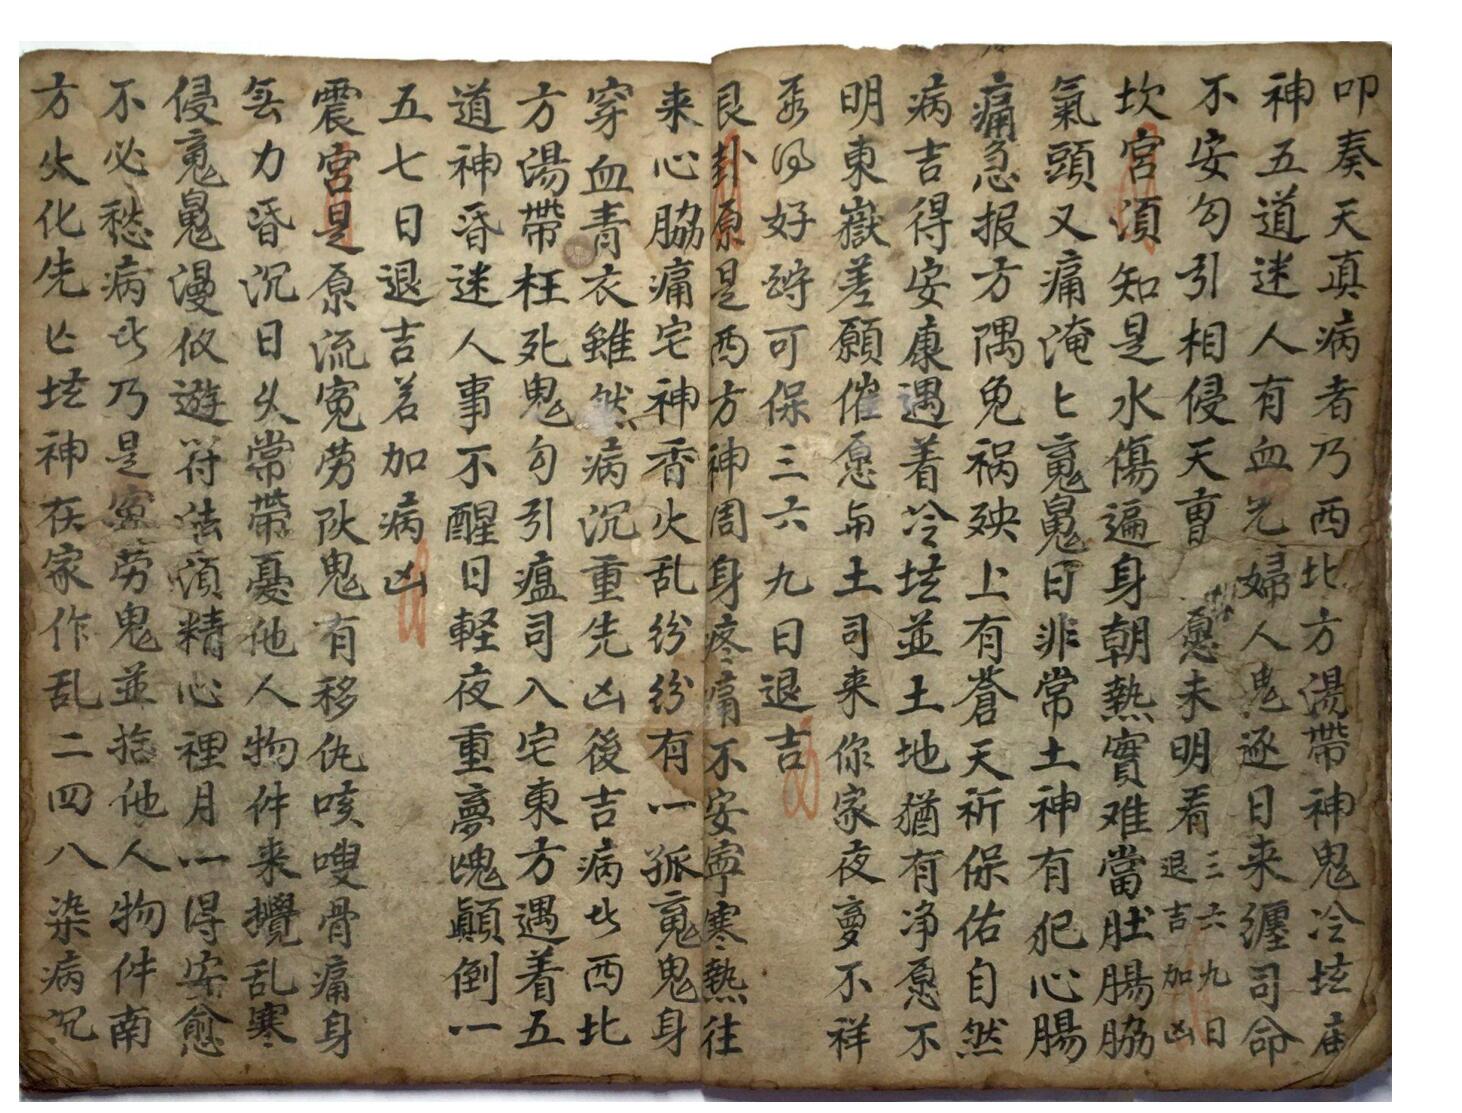 叩奏天真病者乃西北方湯帶神鬼冷坛庙
神五道迷人有血光婦人鬼逐日来纏司命
不安勾引相侵天曹愿未明看三六九日退吉加凶
坎宮須知是水傷遍身朝熱實难當肚腸脇
氣頭又痛淹匕鬼日非常土神有犯心腸
痛急报方隅免祸殃上有蒼天祈保佑自然
病吉得安康遇着冷坛並土地猶有净愿不
明東嶽差願催愿毋土司来你家夜夢不祥
好時可保三六九日退吉
艮卦原是西方神周身疼痛不安寧寒熱往
来心脇痛宅神香火乱纷纷有一孤鬼身
穿血青衣雖然病沉重先凶後吉病此西北
方湯帶枉死鬼勾引瘟司入宅東方遇着五
道神昏迷人事不醒日軽夜重夢魂顛倒一
五七日退吉若加病凶
震宮是原流冤劳鬼有移仇咳嗽骨痛身
無力昏沉日久常帶憂他人物件来攪乱寒
侵漫攸遊符法須精心裡月一得安愈
不必愁病此乃是劳鬼並捨他人物件南
方火化先亡坛神在家作乱二四八染病沉